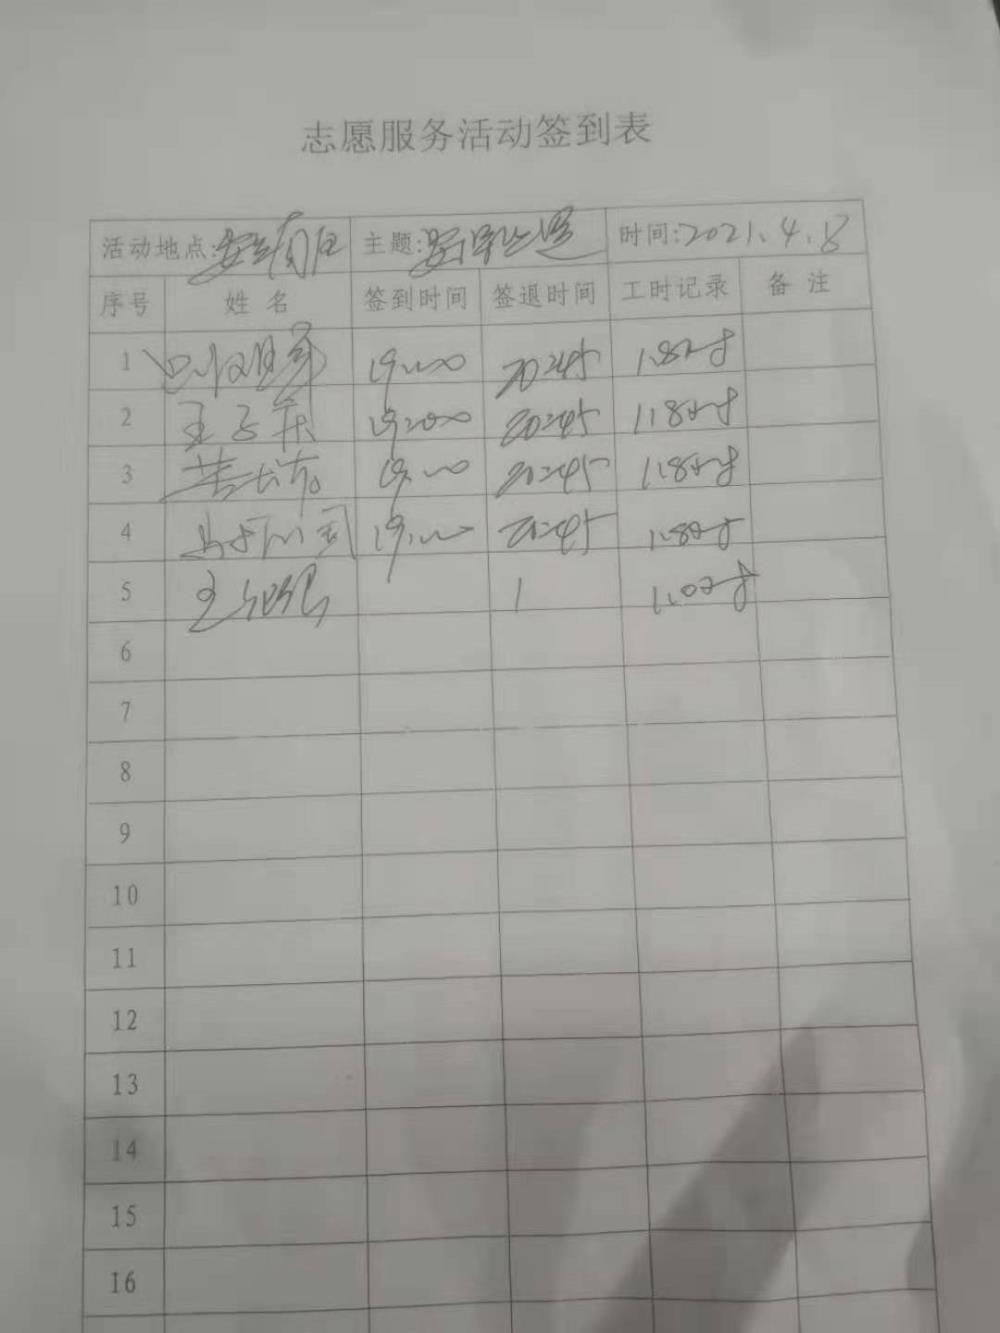 志愿服务活动签到表
活动地点: 主题: 时间:2021.4.8
序号 姓名 签到时间 签退时间 工时记录 备注
1 19:00 20:45 1.8小时
2 王子 19:00 20:45 1.8小时
3 19:00 20:45 1.8小时
4 19:00 20:45 1.8小时
5 王 1.0小时
6
7
8
9
10
11
12
13
14
15
16